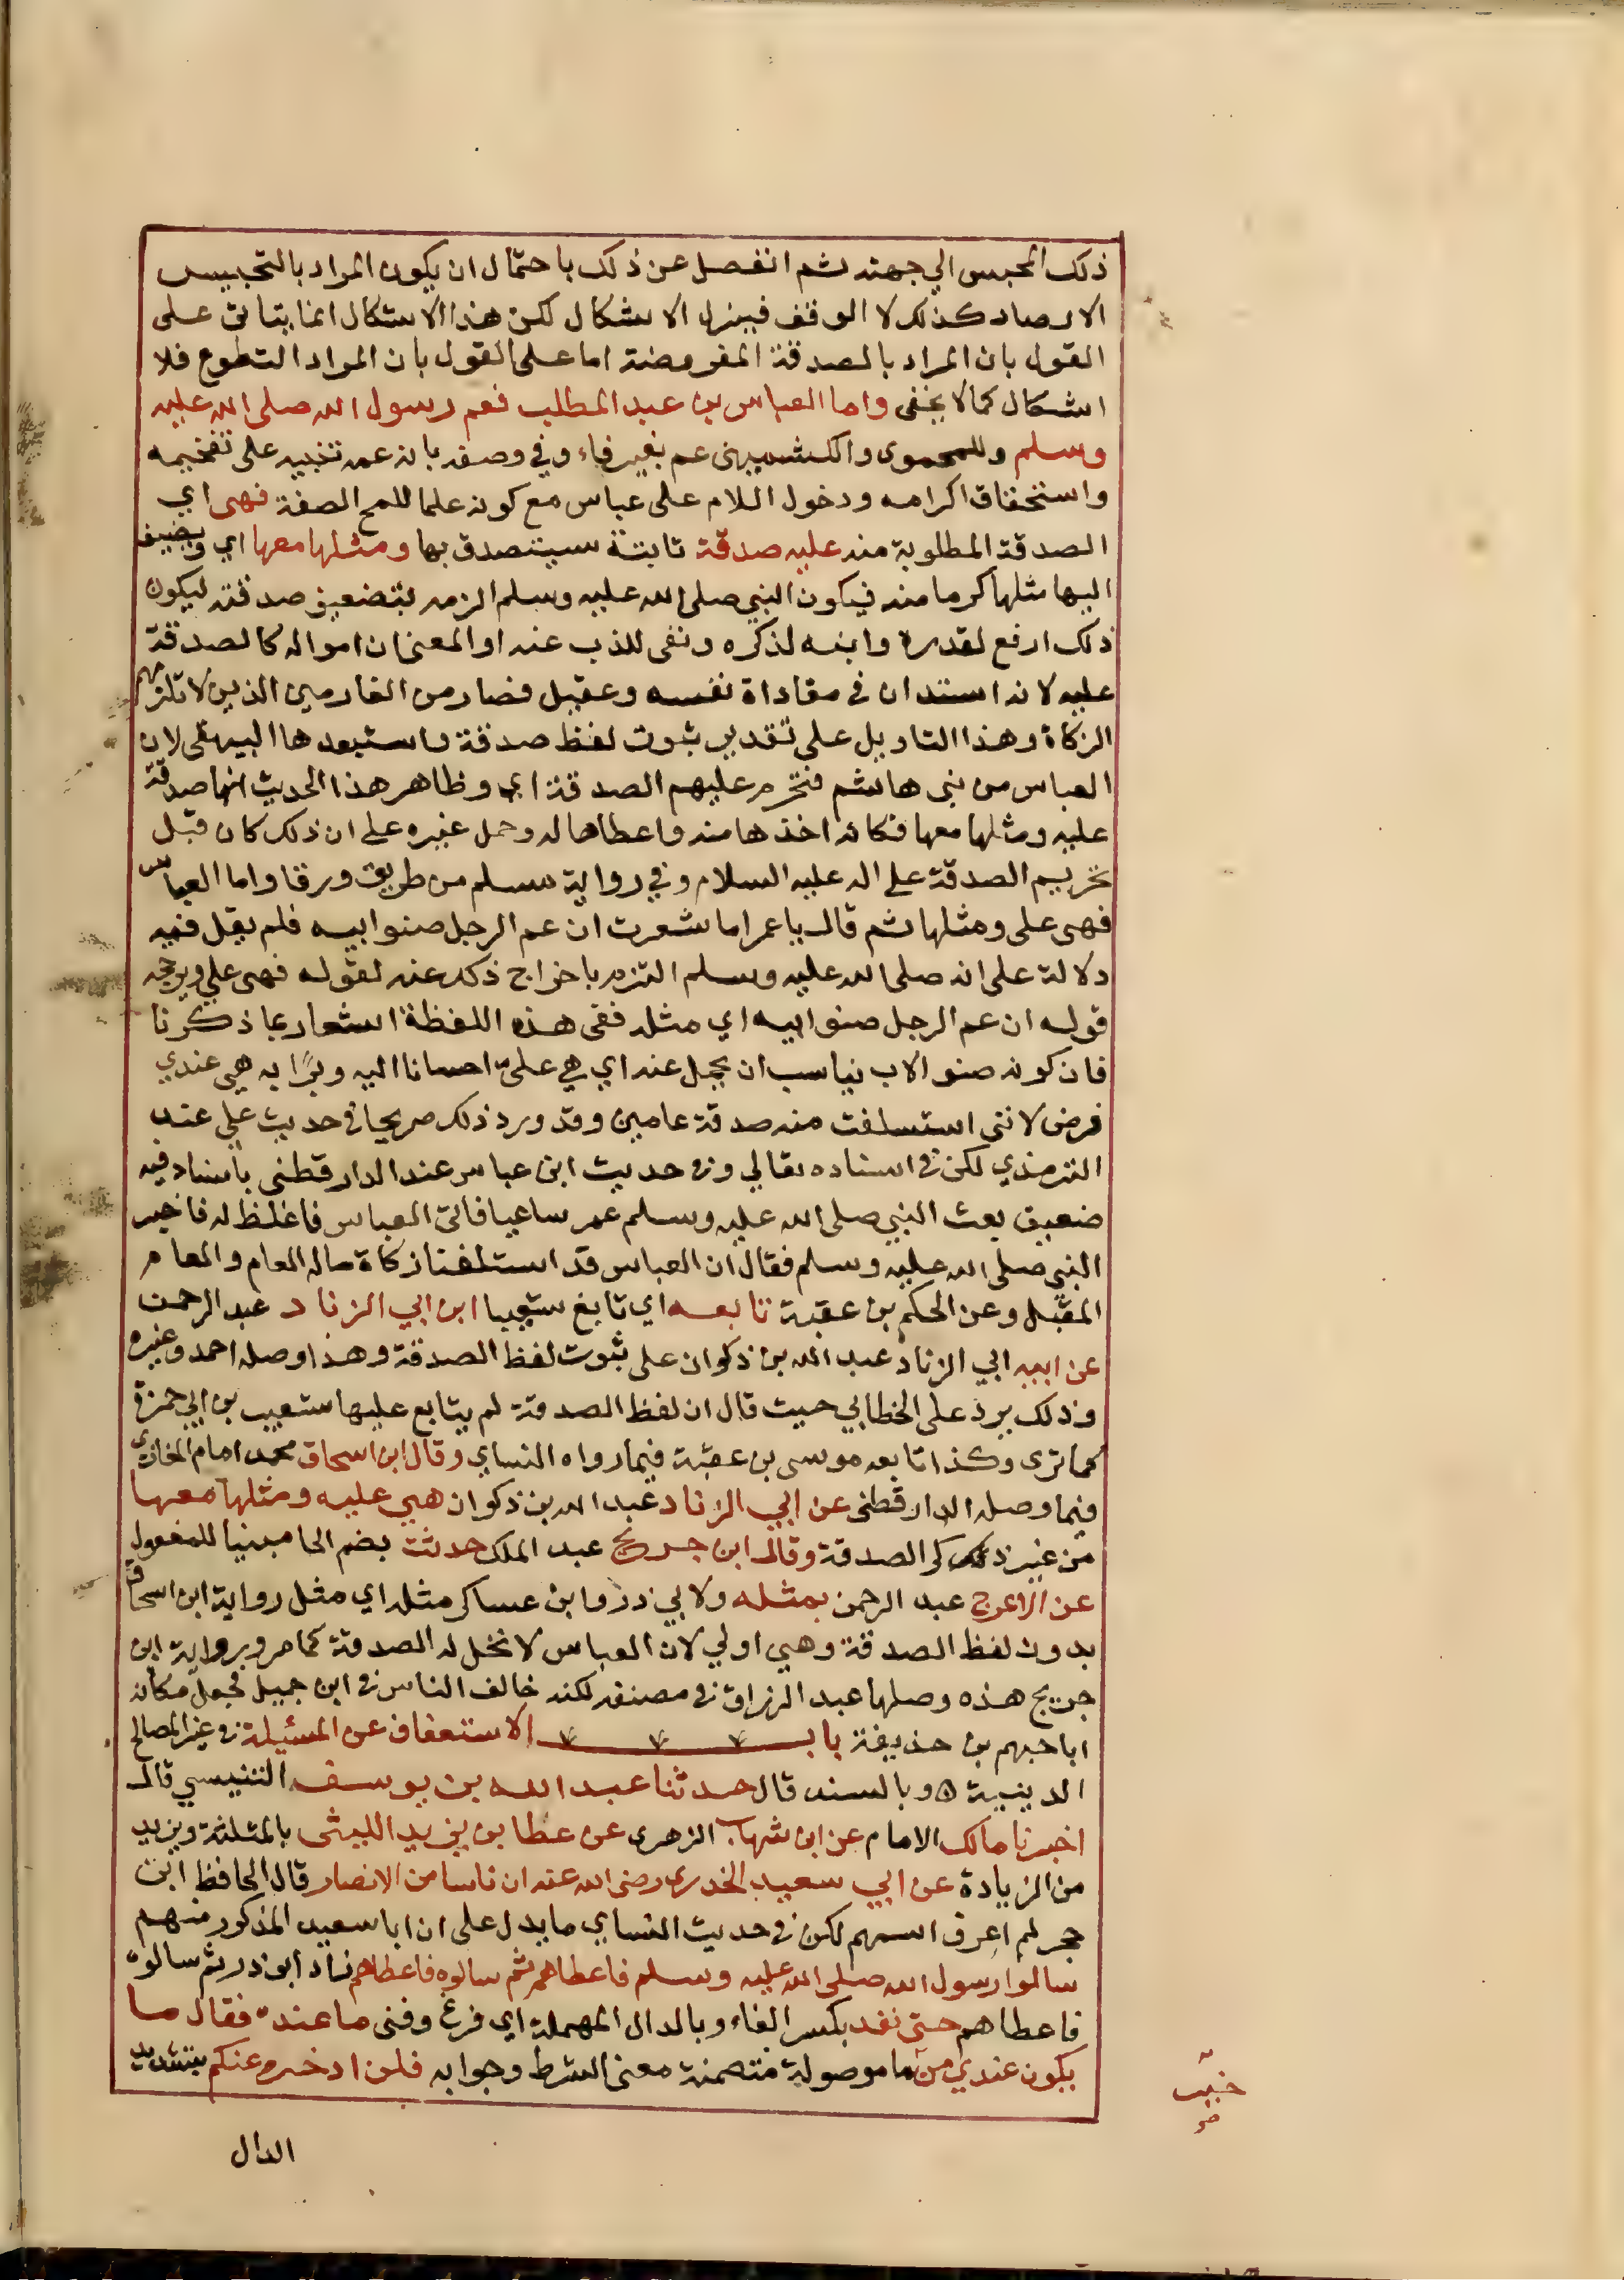 ذلك المحبس الي جهته ثم انفصل عن ذلك باحتمال ان يكون المراد بالتحبيس
الارصاد كذلك لا الوقف فيزول الاشكال لكن هذا الاشكال انما يتاتى على
القول بان المراد بالصدقة المفروضة اما على القول بان المراد التطوع فلا
اشكال كما لا يخفى واما العباس بن عبد المطلب فعم رسول الله صلى الله عليه
وسلم وللحموى والكشميهنى عم بغير فاء وفي وصفه بانه عمه تنبيه على تفخيمه
واستحقاق اكرامه ودخول اللام على عباس مع كونه علما للمح الصفة فهى اي
الصدقة المطلوبة منه عليه صدقة ثابتة سيتصدق بها ومثلها معها اي ويضيف
اليها مثلها كرما منه فيكون النبي صلى الله عليه وسلم الزمه بتضعيف صدقته ليكون
ذلك ارفع لقدره وانبه لذكره ونفى للذب عنه او المعنى ان امواله كالصدقة
عليه لانه استدان في مفاداة نفسه وعقيل فصار من الغارمين الذين لا تلزمهم
الزكاة وهذا التاويل على تقدير ثبوت لفظ صدقة واستبعدها البيهقى لان
العباس من بنى هاشم فتحرم عليهم الصدقة اي وظاهر هذا الحديث انها صدقة
عليه ومثلها معها فكانه اخذها منه واعطاها له وحمل غيره على ان ذلك كان قبل
تحريم الصدقة على اله عليه السلام وفي رواية مسلم من طريق ورقا واما العباس
فهى على ومثلها ثم قال يا عمر اما شعرت ان عم الرجل صنو ابيه فلم يقل فيه
دلالة على انه صلى الله عليه وسلم التزم باخراج ذلك عنه لقوله فهى علي ويرجحه
قوله ان عم الرجل صنو ابيه اي مثله ففى هذه اللفظة اشعار بما ذكرنا
فان كونه صنو الاب يناسب ان يحمل عنه اي هي علىّ احسانا اليه وبرًا به هي عندي
فرض لاننى استسلفت منه صدقة عامين وقد ورد ذلك صريحا في حديث علي عند
الترمذي لكن في اسناده مقال وفي حديث ابن عباس عند الدارقطنى باسناد فيه
ضعيف بعث النبي صلى الله عليه وسلم عمر ساعيا فاتى العباس فاغلظ له فاخبر
النبي صلى الله عليه وسلم فقال ان العباس قد استلفنا زكاة ماله العام والعام
المقبل وعن الحكم بن عقبة تابعه اي تابع شعيبا ابن ابي الزناد عبد الرحمن
عن ابيه ابي الزناد عبد الله بن ذكوان على ثبوت لفظ الصدقة وهذا وصله احمد وغيره
وذلك يرد على الخطابي حيث قال ان لفظ الصدقة لم يتابع عليها شعيب بن ابي حمزة
كما ترى وكذا تابعه موسى بن عقبة فيما رواه النساي وقال ابن اسحاق محمد امام المغازى
فيما وصله الدارقطنى عن ابي الزناد عبد الله بن ذكوان هي عليه ومثلها معها
من غير ذكر الصدقة وقال ابن جريج عبد الملك حدثت بضم الحا مبنيا للمفعول
عن الاعرج عبد الرحمن بمثله ولابي ذر وابن عساكر مثله اي مثل رواية ابن اسحاق
بدون لفظ الصدقة وهي اولي لان العباس لا تحل له الصدقة كما مر ورواية ابن
جريج هذه وصلها عبد الرزاق في مصنفه لكنه خالف الناس في ابن جميل فجعل مكانه
ابا جهم بن حذيفة باب الاستعفاف عن المسئلة في غير المصالح
الدينية ه وبالسند قال حدثنا عبد الله بن يوسف التنيسي قال
اخبرنا مالك الامام عن ابن شهاب الزهرى عن عطا بن يزيد الليثى بالمثلثة ويزيد
من الزيادة عن ابي سعيد الخدرى رضى الله عنه ان ناسا من الانصار قال الحافظ ابن
حجر لم اعرف اسمهم لكن في حديث النساي ما يدل على ان ابا سعيد المذكور منهم
سالوا رسول الله صلى الله عليه وسلم فاعطاهم ثم سالوه فاعطاهم زاد ابو ذر ثم سالوه
فاعطاهم حتى نفد بكسر الفاء وبالدال المهملة اي فرغ وفنى ما عنده فقال ما
يكون عندي من ما موصولة متضمنة معنى الشرط وجوابه فلن ادخره عنكم بتشديد
الدال